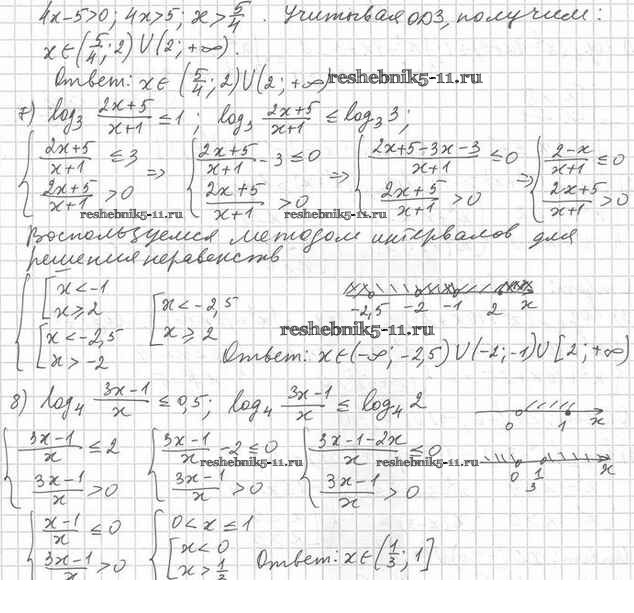 4x-5>0; 4x>5; x>5/4. Учитывая ОДЗ, получим:
x∈(5/4; 2)∪(2; +∞).
Ответ: x∈(5/4; 2)∪(2; +∞)
reshebnik5-11.ru
7) log₃ (2x+5)/(x+1) ≤ 1; log₃ (2x+5)/(x+1) ≤ log₃ 3;
{ (2x+5)/(x+1) ≤ 3 ⇒ { (2x+5)/(x+1) - 3 ≤ 0 ⇒ { (2x+5-3x-3)/(x+1) ≤ 0 ⇒ { (2-x)/(x+1) ≤ 0
(2x+5)/(x+1) > 0 (2x+5)/(x+1) > 0 (2x+5)/(x+1) > 0 (2x+5)/(x+1) > 0
reshebnik5-11.ru reshebnik5-11.ru
Воспользуемся методом интервалов для
решения неравенств
{ [ x<-1 [ x<-2,5
x≥2 x≥2
[ x<-2,5
x>-2
-2,5 -2 -1 2 x
reshebnik5-11.ru
Ответ: x∈(-∞; -2,5)∪(-2; -1)∪[2; +∞)
8) log₄ (3x-1)/x ≤ 0,5; log₄ (3x-1)/x ≤ log₄ 2
0 1 x
{ (3x-1)/x ≤ 2 { (3x-1)/x - 2 ≤ 0 { (3x-1-2x)/x ≤ 0
(3x-1)/x > 0 (3x-1)/x > 0 (3x-1)/x > 0
reshebnik5-11.ru reshebnik5-11.ru
0 1/3 x
{ (x-1)/x ≤ 0 { 0<x≤1
(3x-1)/x > 0 [ x<0
x>1/3
Ответ: x∈(1/3; 1]